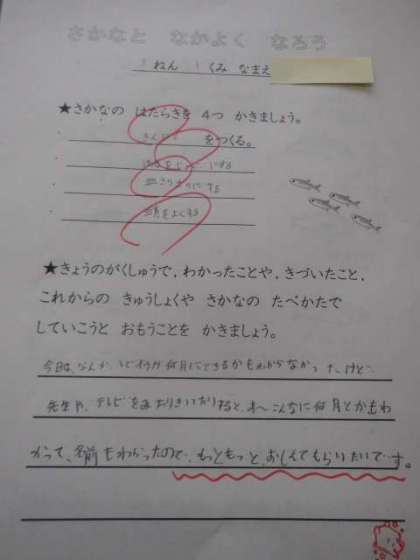 さかなと なかよく なろう
ねん くみ なまえ
★さかなの はたらきを 4つ かきましょう。
をつくる。
にする
にする
頭をよくする
★きょうのがくしゅうで、わかったことや、きづいたこと、
これからの きゅうしょくや さかなの たべかたで
していこうと おもうことを かきましょう。
今日は、なんの 何月にできるかもわからなかった、けど、
先生や、テレビをみたりきいたりすると、こんなに何月とかもわ
かって、名前もわかったので、もっともっと、おしえてもらいたいです。